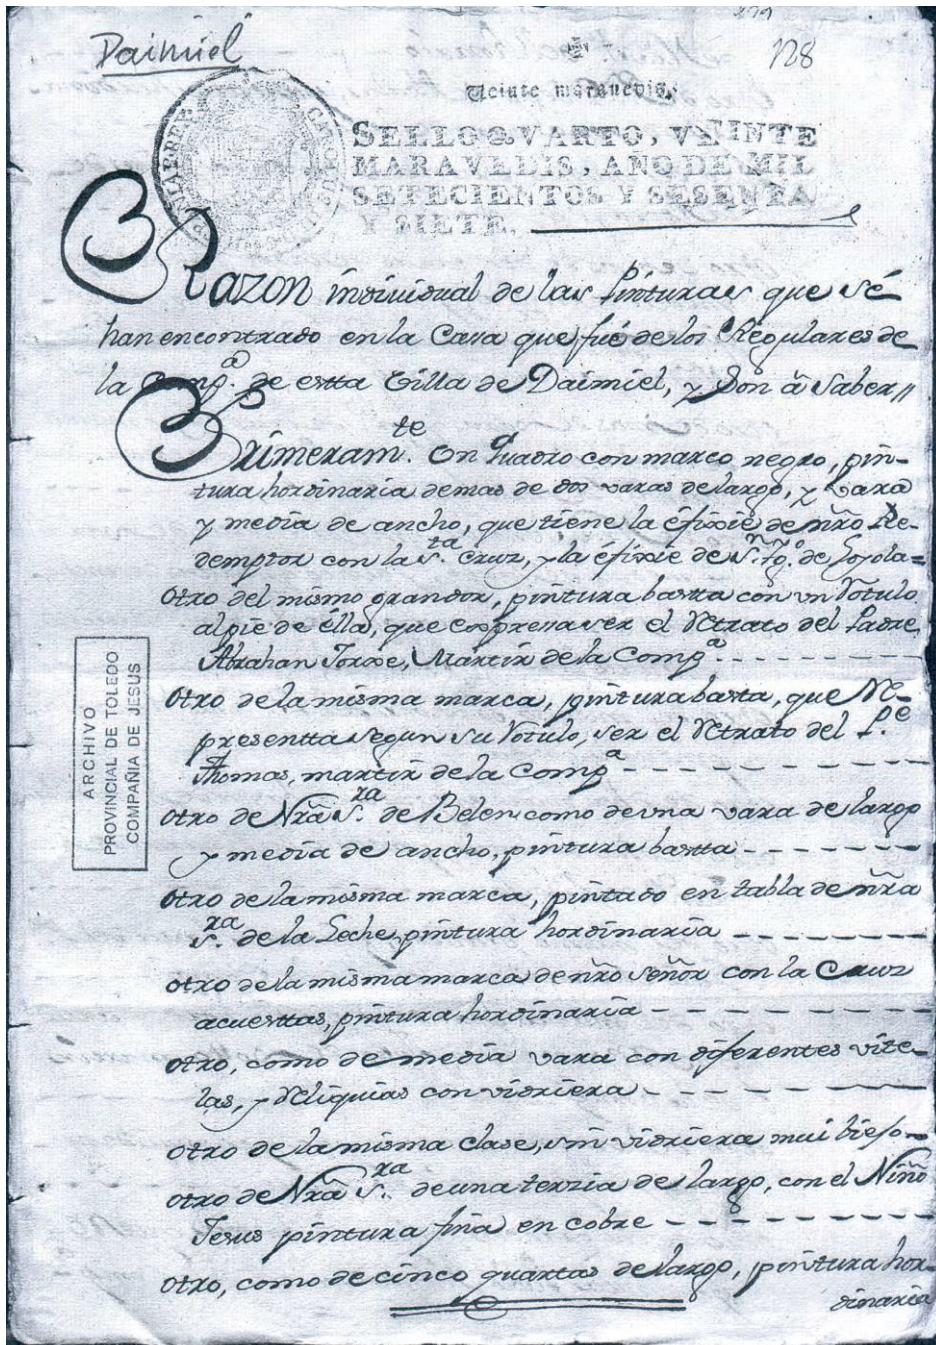 Daimiel
128
Veinte maravedis.
SELLO QVARTO, VEINTE
MARAVEDIS, AÑO DE MIL
SETECIENTOS Y SESENTA
Y SIETE.
Razon individual de las Pinturas que sé
han encontrado en la Casa que fué de los Regulares de
la Comp.ª de estta Villa de Daimiel, y son â saber//
Primeram.te Un Quadro con marco negro, pin-
tura hordinaria de mas de dos varas de largo, y vara
y media de ancho, que tiene la éfixie de nr̃o Re-
demptor con la S.ta Cruz, y la éfixie de S.n Ygn.º de Loyola=
Otro del mismo grandor, pintura bastta con vn Rotulo
al pie de élla, que expresa ser el Retrato del Padre
Abrahan Jorxe, Martir de la Comp.ª
Otro de la misma marca, pintura bastta, que Re-
presentta segun su Rotulo, ser el Retrato del P.e
Thomas, martir de la Comp.ª
Otro de Nr̃a S.ra de Belen como de vna vara de largo
y media de ancho, pintura bastta
Otro de la misma marca, pintado en tabla de nr̃a
S.ra de la Leche, pintura hordinaria
Otro de la misma marca de nr̃o Señor con la Cruz
acuesttas, pintura hordinaria
Otro, como de media vara con diferentes vite-
las, y Reliquias con vidriera
Otro de la misma clase, sin vidriera mui biejo
Otro de Nr̃a S.ra de una terzia de largo, con el Niño
Jesus pintura fina en cobre
Otro, como de cinco quartas de largo, pintura hor-
dinaria
ARCHIVO
PROVINCIAL DE TOLEDO
COMPAÑIA DE JESUS